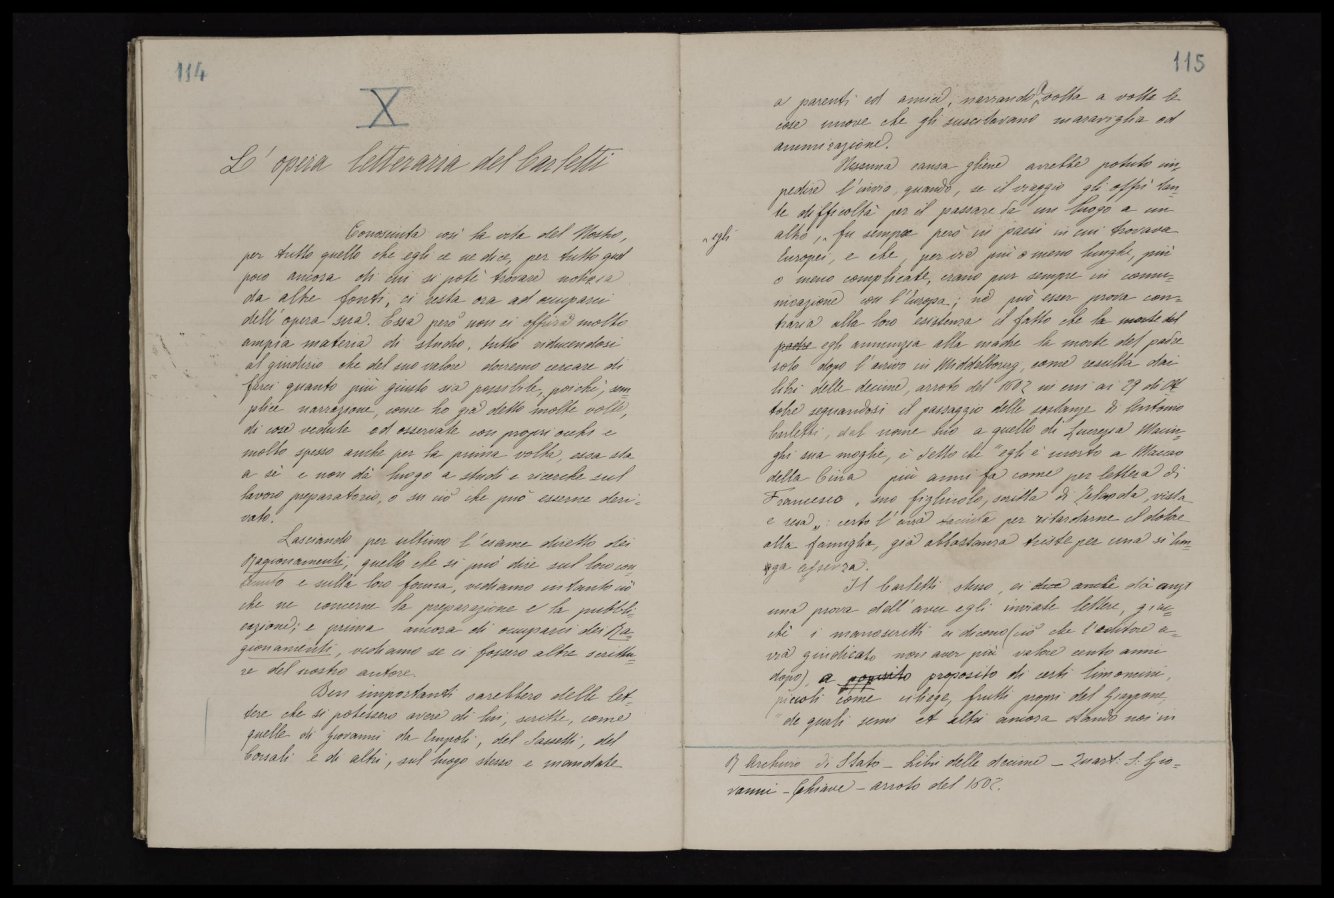 114
X
L'opera letteraria del Carletti
Conosciuta così la vita del Nostro,
per tutto quello che egli ce ne dice, per tutto quel
poco ancora di cui si potè trovare notizia
da altre fonti, ci resta ora ad occuparci
dell'opera sua. Essa però non ci offrirà molto
ampia materia di studio, tutto riducendosi
al giudizio che del suo valore dovremo cercare di
farci quanto più giusto sia possibile, poichè, sem-
plice narrazione, come ho già detto molte volte,
di cose vedute ed osservate con propri occhi e
molto spesso anche per la prima volta, essa sta
a sè e non dà luogo a studi e ricerche sul
lavoro preparatorio, o su ciò che può esserne deri-
vato.
Lasciando per ultimo l'esame diretto dei
Ragionamenti, quello che si può dire sul loro con-
tenuto e sulla loro forma, vediamo intanto ciò
che ne concerne la preparazione e la pubbli-
cazione; e prima ancora di occuparci dei Ra-
gionamenti, vediamo se ci fossero altre scrittu-
re del nostro autore.
Ben importanti sarebbero delle let-
tere che si potessero avere di lui, scritte, come
quelle di Giovanni da Empoli, del Sassetti, del
Corsali e di altri, sul luogo stesso e mandate
115
a parenti ed amici, narrando a volta a volta le
cose nuove che gli suscitavano maraviglia ed
ammirazione.
Nessuna causa gliene avrebbe potuto im-
pedire l'invio, quando, se il viaggio gli offrì tan-
te difficoltà per il passare da un luogo a un
altro, fu sempre però in paesi in cui trovava
"egli
Europei, e che, per via più o meno lunghe, più
o meno complicate, erano pur sempre in comu-
nicazione con l'Europa; nè può esser prova con-
traria alla loro esistenza il fatto che la morte del
padre egli annunzia alla madre la morte del padre
solo dopo l'arrivo in Middelbourg, come resulta dai
libri delle decime, arroto del 1602 in cui ai 29 di Ot-
tobre segnandosi il passaggio delle sostanze di Antonio
Carletti, dal nome suo a quello di Lucrezia Macin-
ghi sua moglie, è detto che "egli è morto a Macao
della Cina più anni fa come per lettera di
Francesco, suo figliuolo, scritta di Zelanda, vista
e resa": certo l'avrà taciuta per ritardarne il dolore
alla famiglia, già abbastanza triste per una sì lun-
ga assenza.
Il Carletti stesso, ci dice anche dà anzi
una prova dell'aver egli inviate lettere, giac-
chè i manoscritti ci dicono (ciò che l'editore a-
vrà giudicato non aver più valore cento anni
dopo), a proposito proposito di certi limoncini,
piccoli come ciliege, frutti propri del Giappone,
"de quali semi et altri ancora stando noi in
1) Archivio di Stato – Libri delle decime – Quart. S. Gio-
vanni – Chiave – arroto del 1602.